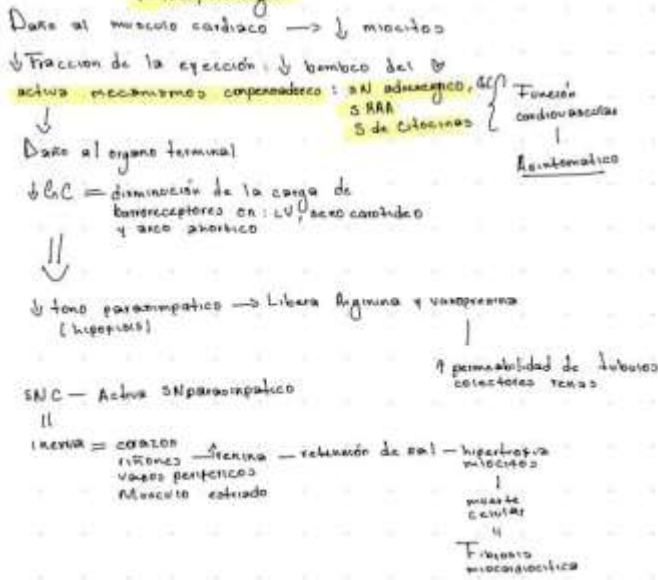 Daño al musculo cardiaco → ↓ miocitos
↓ Fraccion de la eyección: ↓ bombeo del
activa mecanismos compensadores: SN adrenergico,
S RAA
S de citocinas
Función
cardiovascular
Asintomatico
↓
Daño al organo terminal
↓ GC = disminución de la carga de
barorreceptores en: LV, seno carotideo
y arco ahortico
↓ tono parasimpatico → Libera Arginina y vasopresina
(hipofisis)
↑ permeabilidad de tubulos
colectores renas
SNC — Activa SNparasimpatico
Inerva = corazon
riñones → ↑renina — retención de sal — hipertrofia
miocitos
vasos perifericos
Musculo estriado
muerte
celular
Fibrosis
miocardiocitica